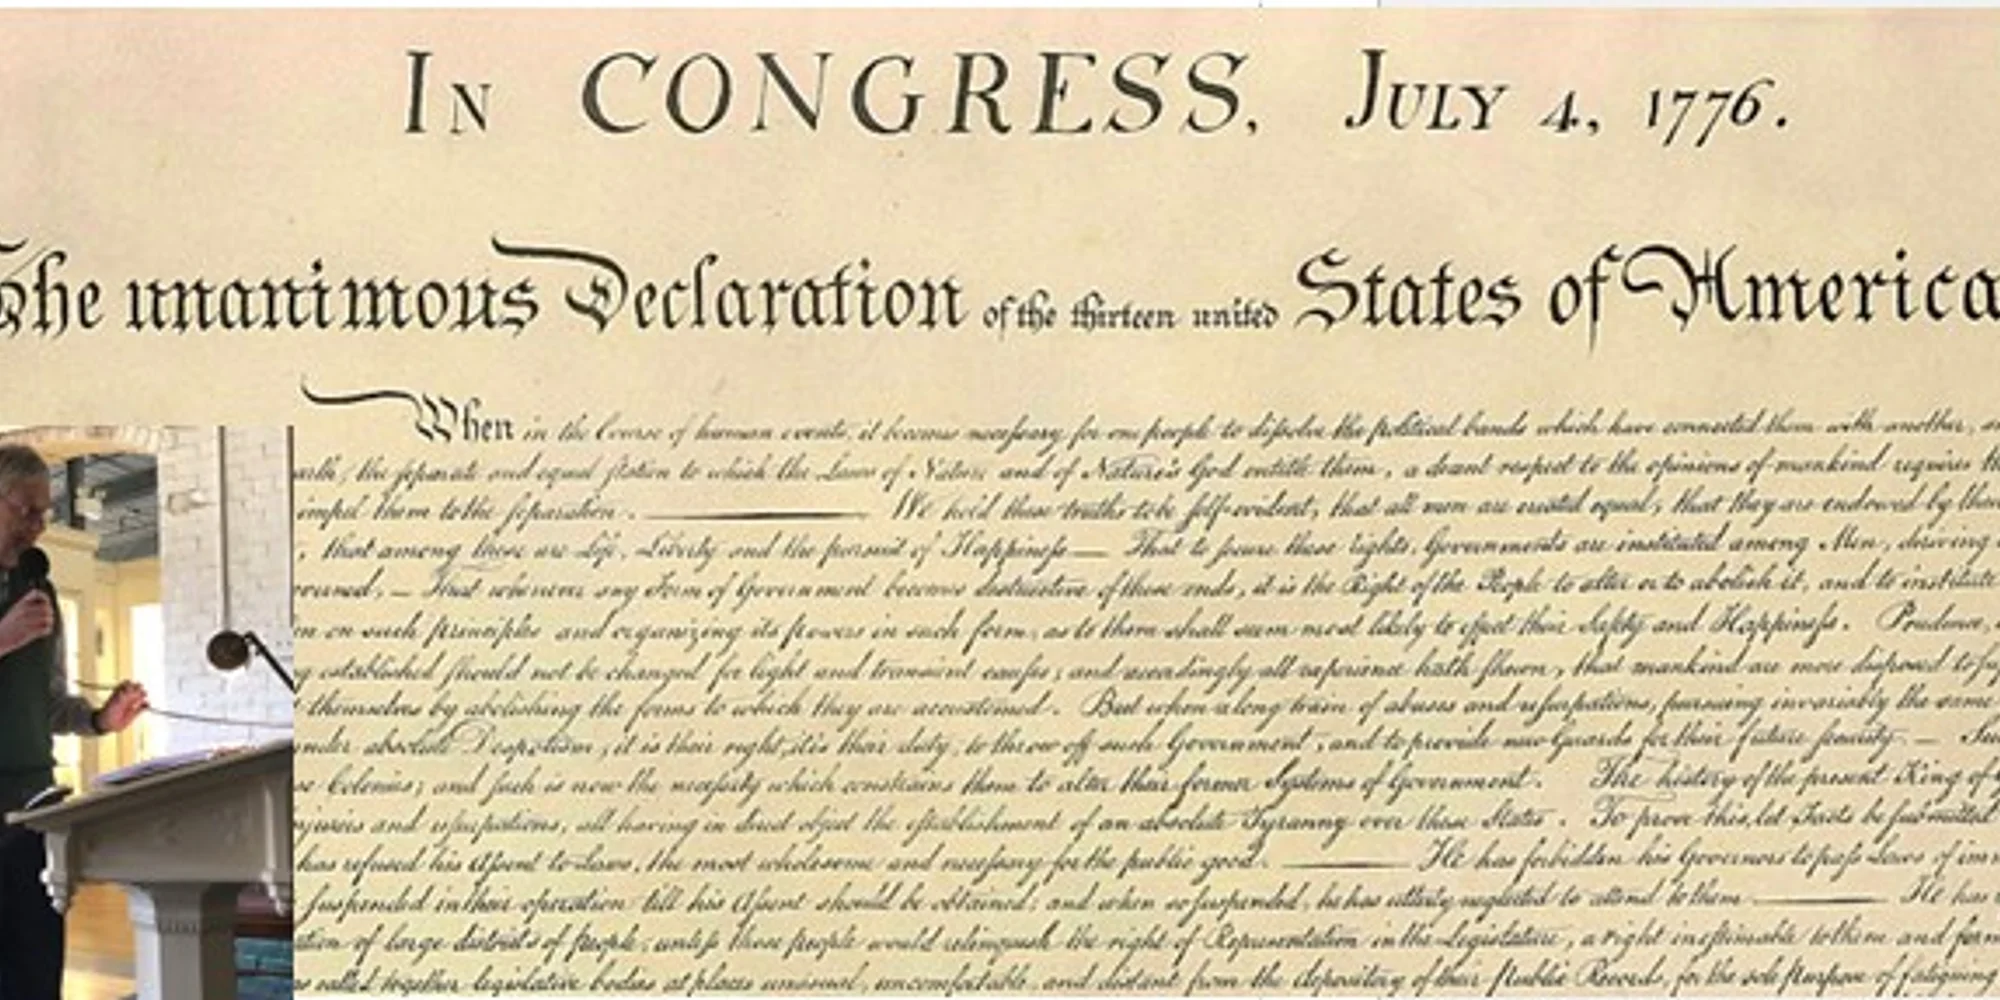 In CONGRESS, July 4, 1776.
The unanimous Declaration of the thirteen united States of America
When in the Course of human events, it becomes necessary for one people to dissolve the political bands which have connected them with another,
the separate and equal station to which the Laws of Nature and of Nature's God entitle them, a decent respect to the opinions of mankind requires
impel them to the separation. —— We hold these truths to be self-evident, that all men are created equal, that they are endowed by
, that among these are Life, Liberty and the pursuit of Happiness — That to secure these rights, Governments are instituted among Men, deriving
— That whenever any Form of Government becomes destructive of these ends, it is the Right of the People to alter or to abolish it, and to institute
on such principles and organizing its powers in such form, as to them shall seem most likely to effect their Safety and Happiness. Prudence,
established should not be changed for light and transient causes; and accordingly all experience hath shewn, that mankind are more disposed to
themselves by abolishing the forms to which they are accustomed. But when a long train of abuses and usurpations, pursuing invariably the same
under absolute Despotism, it is their right, it is their duty, to throw off such Government, and to provide new Guards for their future security. —
Colonies; and such is now the necessity which constrains them to alter their former Systems of Government. The history of the present King of
injuries and usurpations, all having in direct object the establishment of an absolute Tyranny over these States. To prove this, let Facts be submitted
has refused his Assent to Laws, the most wholesome and necessary for the public good. —— He has forbidden his Governors to pass Laws of
suspended in their operation till his Assent should be obtained; and when so suspended, he has utterly neglected to attend to them —— He has
of large districts of people, unless those people would relinquish the right of Representation in the Legislature, a right inestimable to them and
called together legislative bodies at places unusual, uncomfortable, and distant from the depository of their Public Records, for the sole purpose of fatiguing